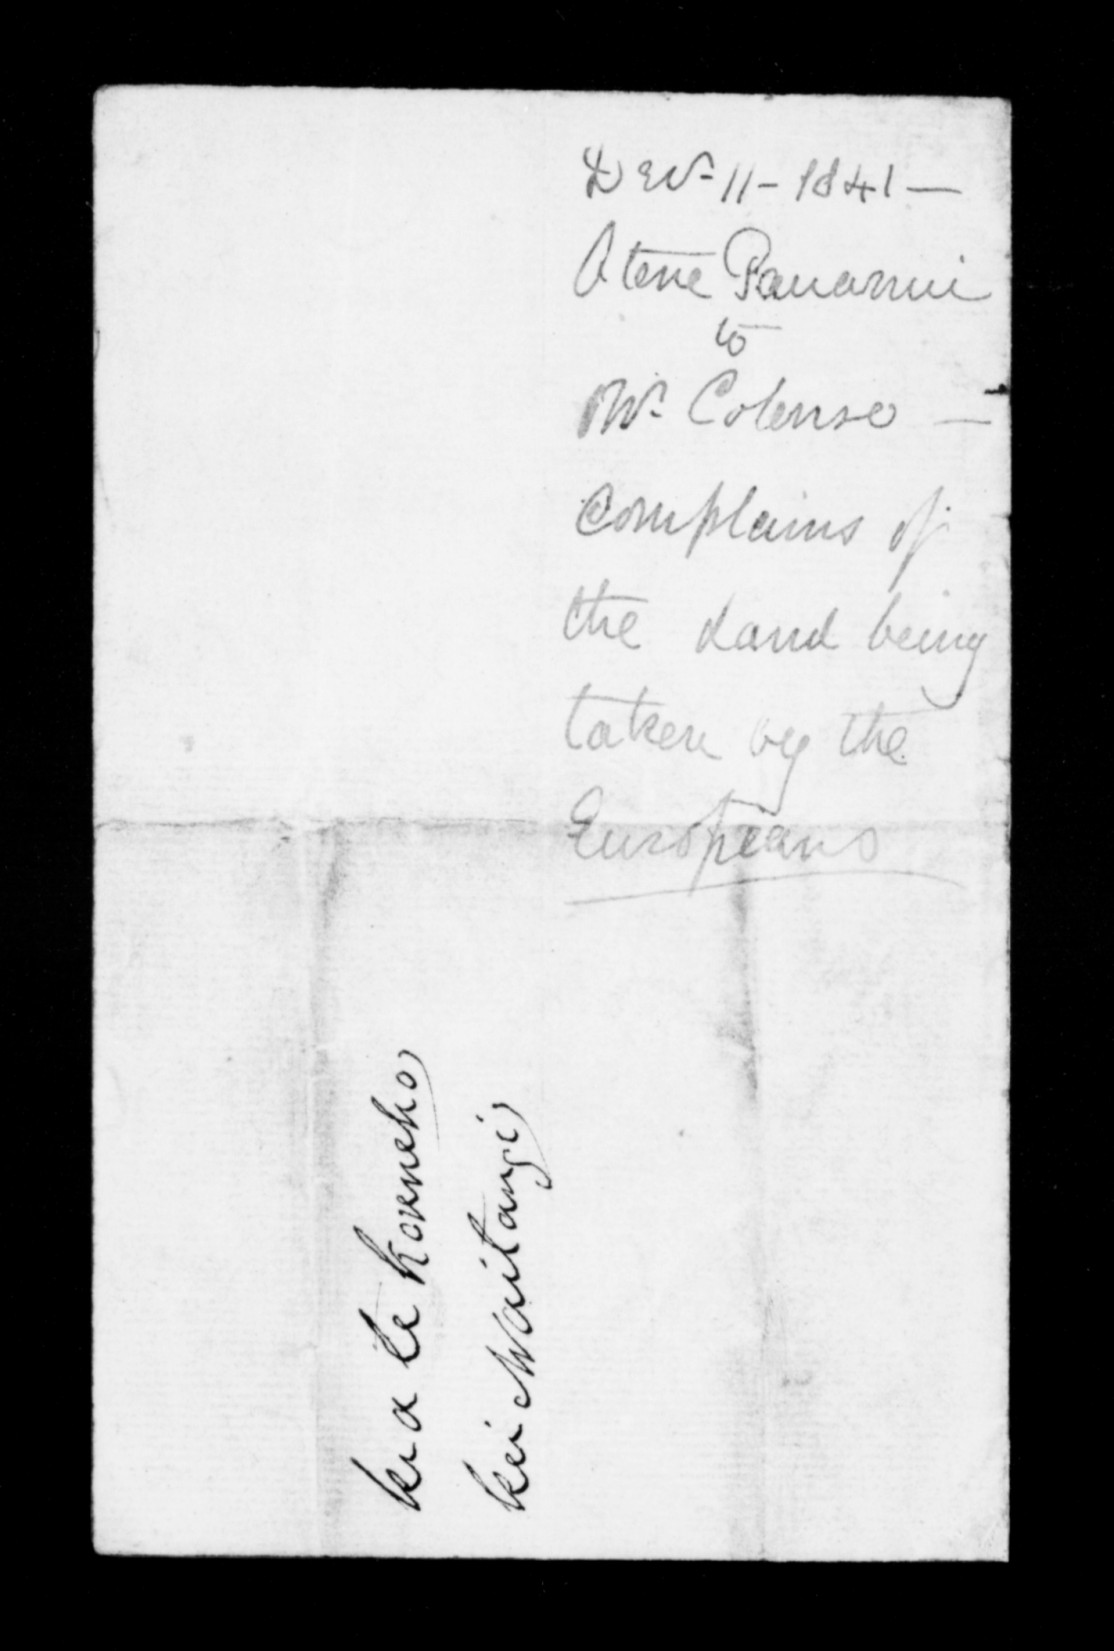 Decr 11 - 1841 —
Atene Pauamui
to
Mr. Colenso —
Complains of
the Land being
taken by the
Europeans
ki a te Koreneho
kei Waitangi